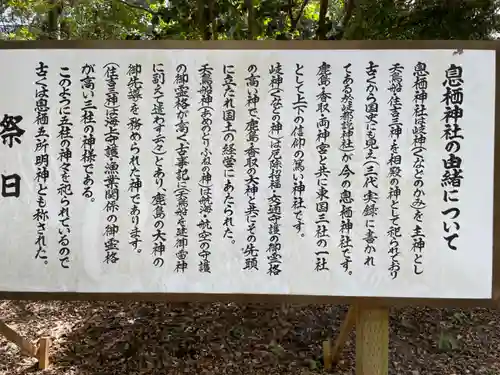 息栖神社の由緒について
息栖神社は岐神(くなどのかみ)を主神とし
天鳥船・住吉三神を相殿の神として祀られており
古くから国史にも見え(三代実録に書かれ
てある於岐都説神社)が今の息栖神社です。
鹿島・香取両神宮と共に東国三社の一社
として上下の信仰の篤い神社です。
岐神(くなどの神)は厄除招福・交通守護の御霊格
の高い神で鹿島・香取の大神と共にその先頭
に立たれ国土の経営にあたられた。
天鳥船神(あめのとりふねの神)は航海・航空の守護
の御霊格が高く(古事記に(天鳥船を建御雷神
に副えて遣わす云々)とあり、鹿島の大神の
御先導を務められた神であります。
(住吉三神)は海上守護・漁業関係の御霊格
が高い三社の神様である。
このように五社の神々を祀られているので
古くは息栖五所明神とも称された。
祭日